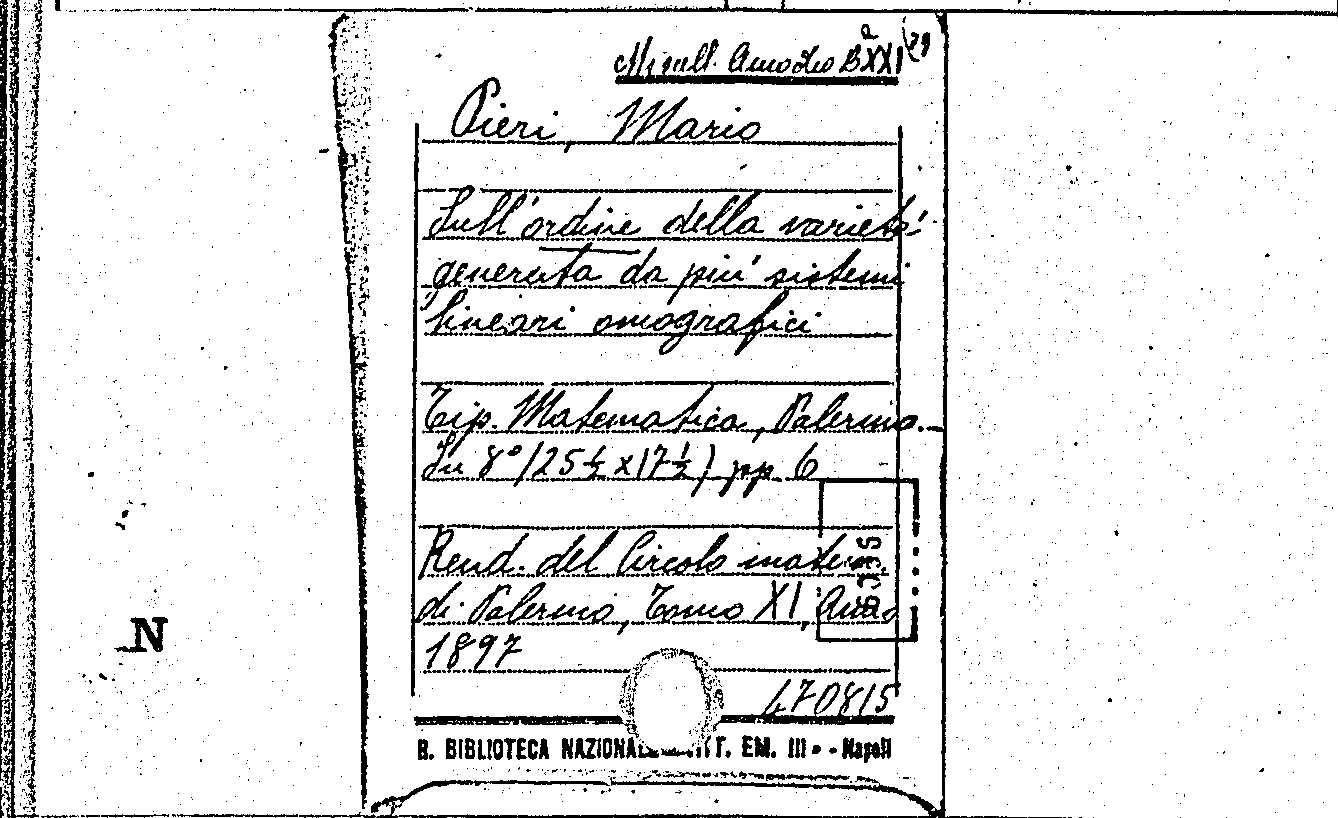 Miscell. Amodeo B XXI (29
a
Pieri, Mario
Sull'ordine della varietà
generata da più sistemi
lineari omografici
Tip. Matematica, Palermo.
In 8° (25½ x 17½) pp. 6
Rend. del Circolo matem.
di Palermo, Tomo XI, Anno
1897
470815
R. BIBLIOTECA NAZIONALE EM. III - Napoli
N